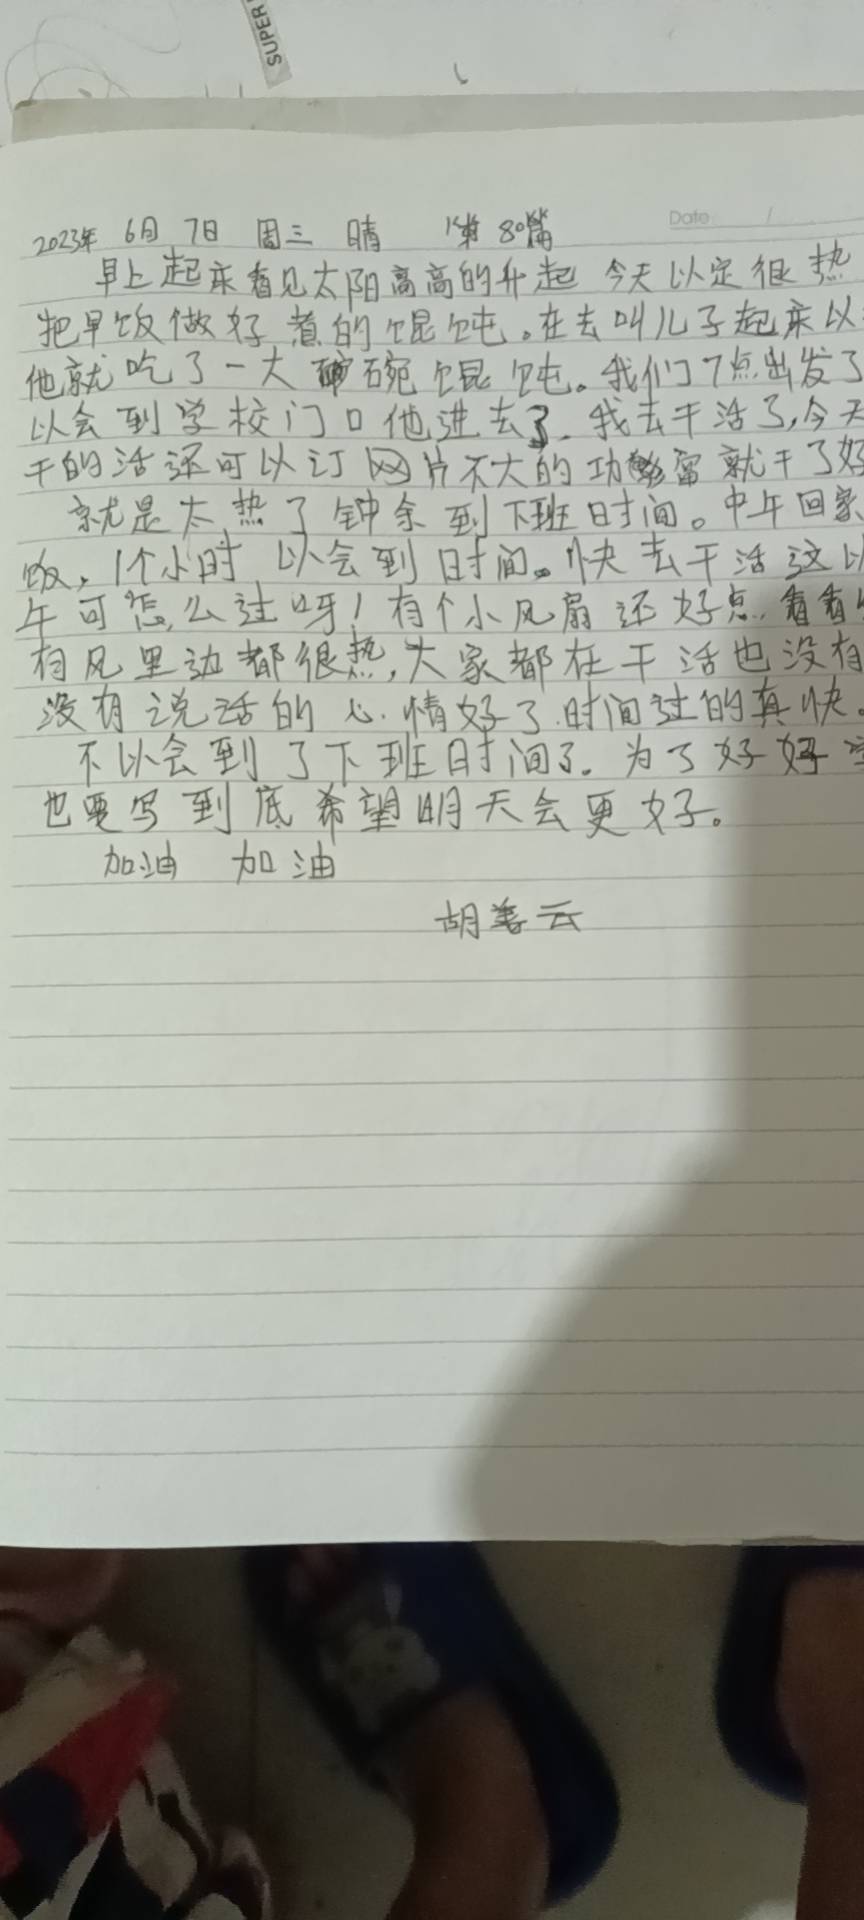 SUPER
Date /
2023年 6月 7日 周三 晴 第 80篇
早上起来看见太阳高高的升起 今天以定很热
把早饭做好 煮的馄饨。在去叫儿子起来以
他就吃了一大碗馄饨。我们7点出发了
以会到学校门口他进去了. 我去干活了,今天
干的活还可以订网片不大的功 就干了好
就是太热了钟余到下班时间。中午回家
饭, 1个小时 以会到时间。快去干活这以
午可怎么过呀! 有个小风扇还好点. 看看
有风里边都很热,大家都在干活也没有
没有说话的心.情好了.时间过的真快。
不以会到了下班时间了. 为了好好
也要写到底希望明天会更好。
加油 加油
胡善云